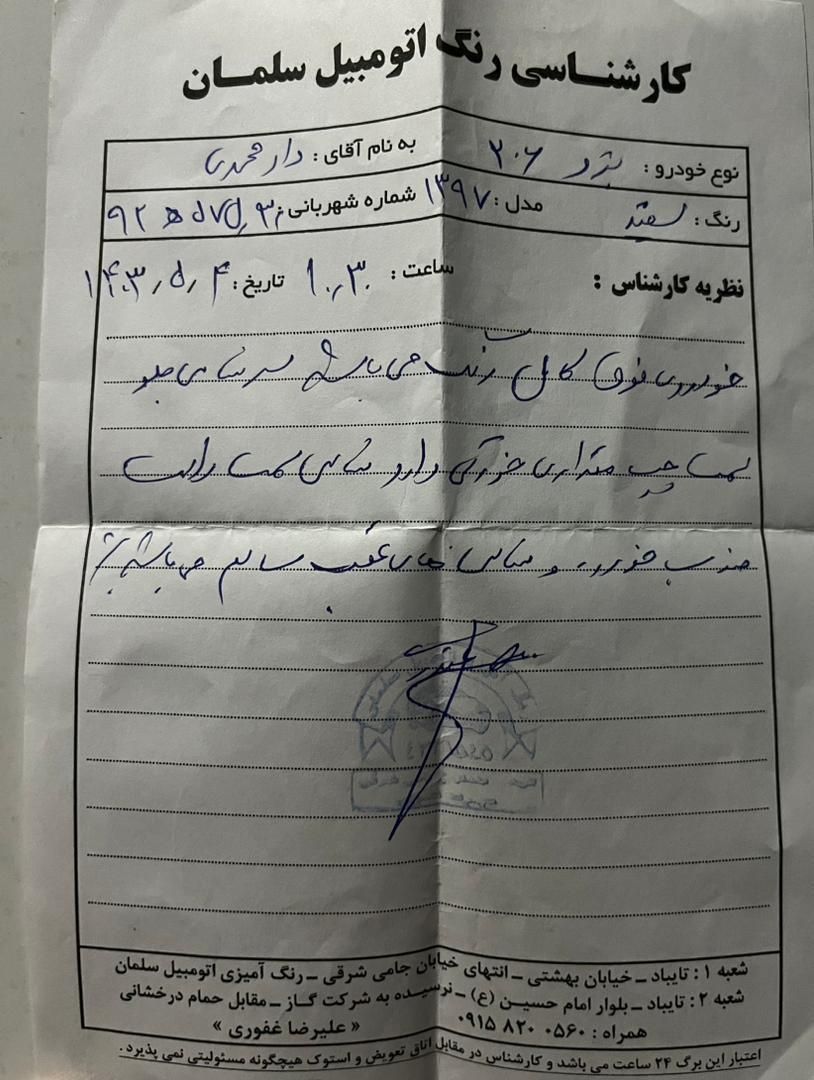 کارشناسی رنگ اتومبیل سلمان
نوع خودرو : پژو ۲۰۶ به نام آقای : دارمحمدی
رنگ : سفید مدل : ۱۳۹۷ شماره شهربانی :
نظریه کارشناس : ساعت : ۱۰٫۳۰ تاریخ : ۱۴۰۳٫۵٫۴
خودروی فوق کامل رنگ می باشد سر شاسی جلو
سمت چپ مقداری خوردگی دارد شاسی سمت راست
ضرب خورده و شاسی های عقب سالم می باشد
شعبه ۱ : تایباد ــ خیابان بهشتی ــ انتهای خیابان جامی شرقی ــ رنگ آمیزی اتومبیل سلمان
شعبه ۲ : تایباد ــ بلوار امام حسین (ع) ــ نرسیده به شرکت گاز ــ مقابل حمام درخشانی
همراه : ۰۵۶۰ ۸۲۰ ۰۹۱۵ « علیرضا غفوری »
اعتبار این برگ ۲۴ ساعت می باشد و کارشناس در مقابل اتاق تعویض و استوک هیچگونه مسئولیتی نمی پذیرد .